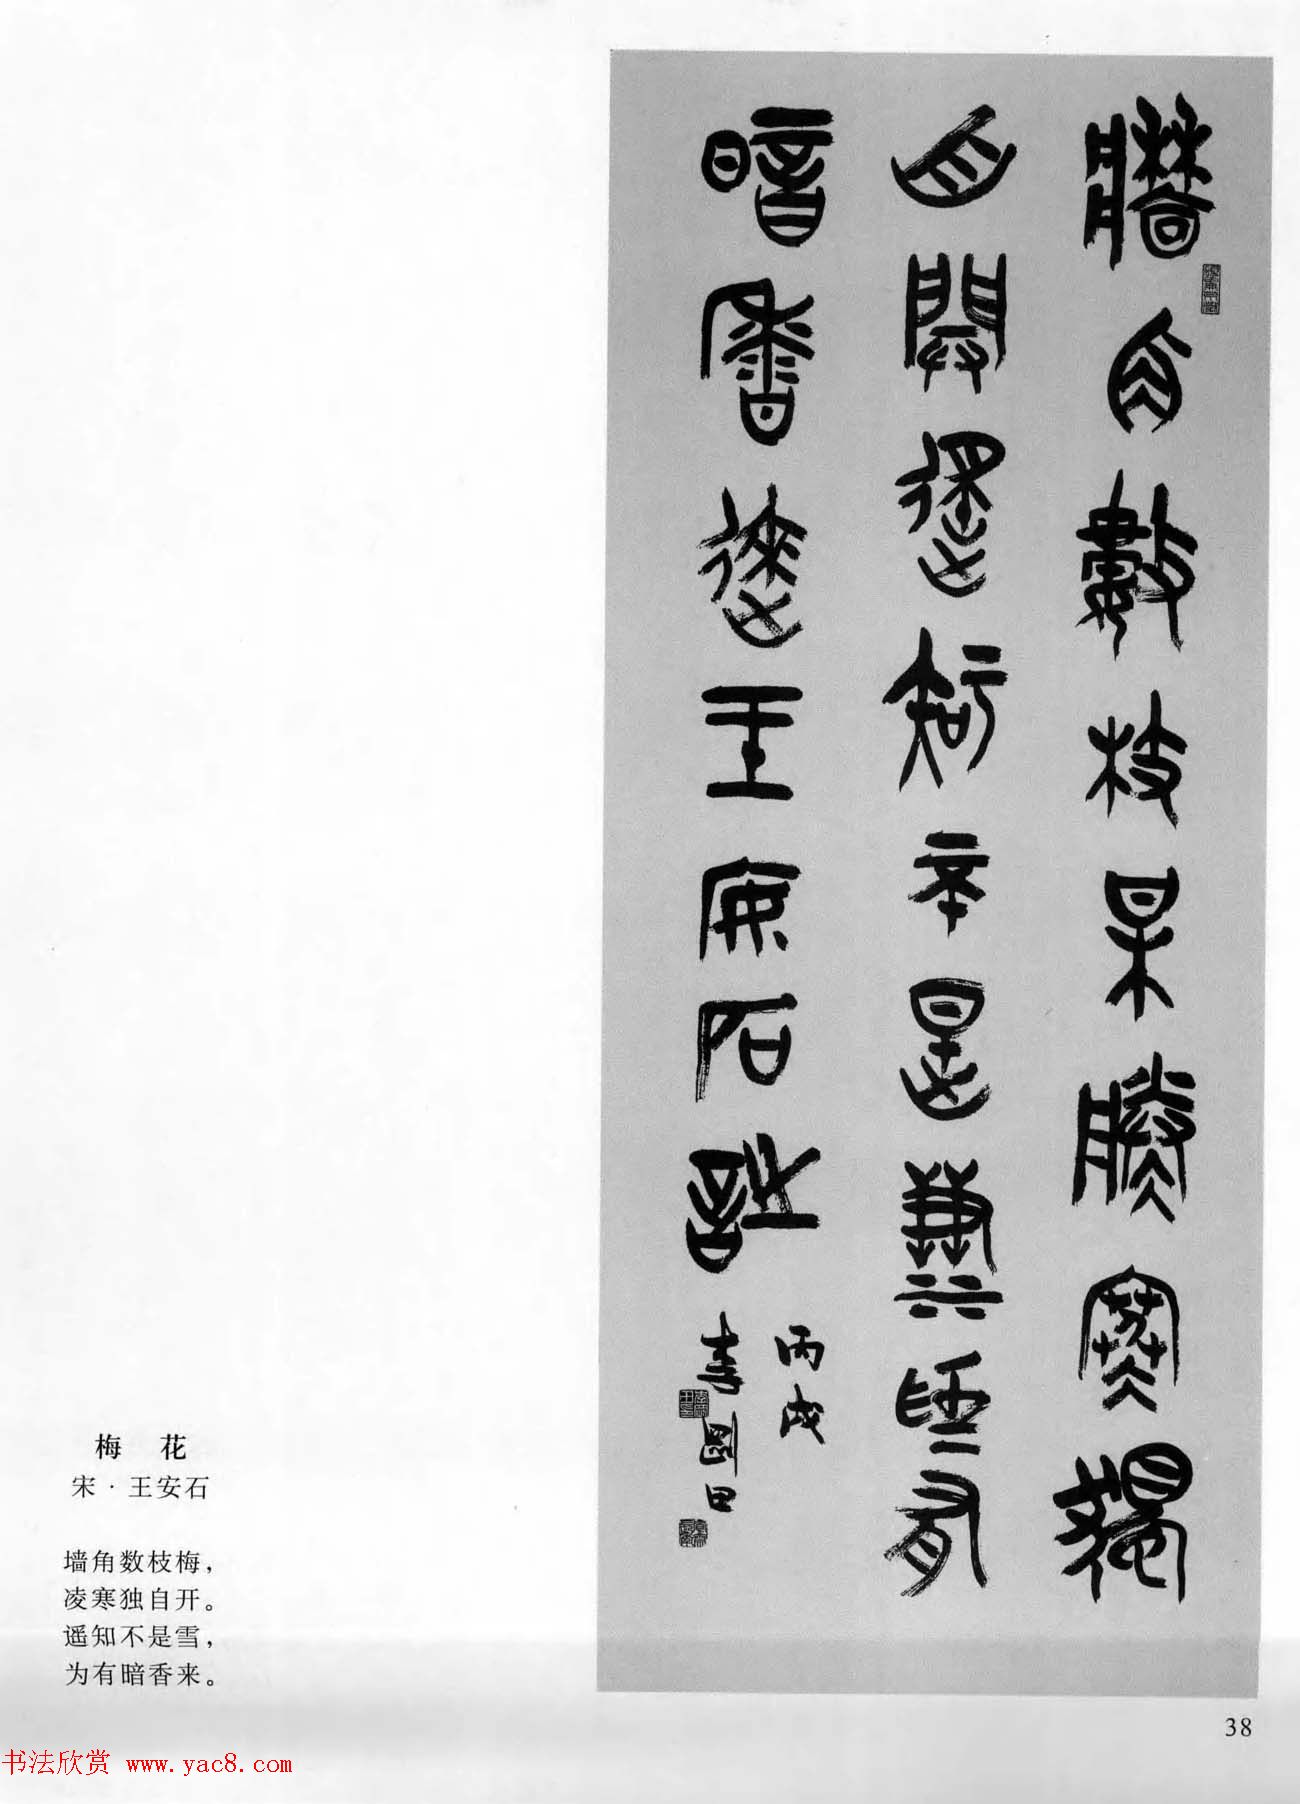 牆角數枝某朕寒獨
自開遥知不是雪为有
暗香來王安石詩
丙戌
李剛田
梅 花
宋·王安石
墙角数枝梅，
凌寒独自开。
遥知不是雪，
为有暗香来。
38
书法欣赏 www.yac8.com